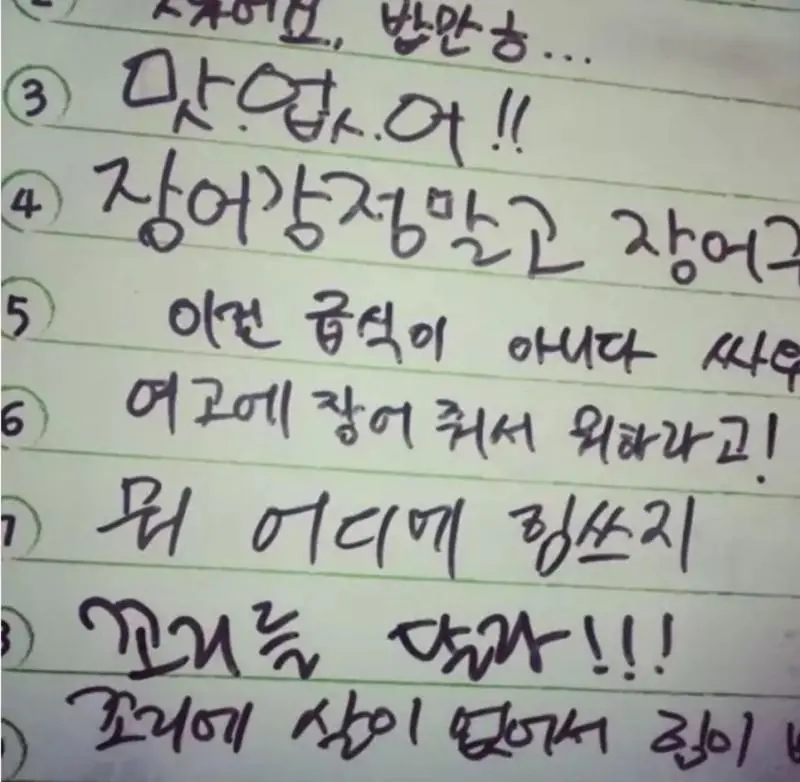 밥만 능...
③ 맛.없.어!!
④ 장어강정말고 장어구
5 이건 급식이 아니다 싸우
6 여고에 장어 줘서 뭐하라고!
7 뭐 어디에 힘쓰지
8 꼬리를 달라!!!
꼬리에 살이 없어서 힘이